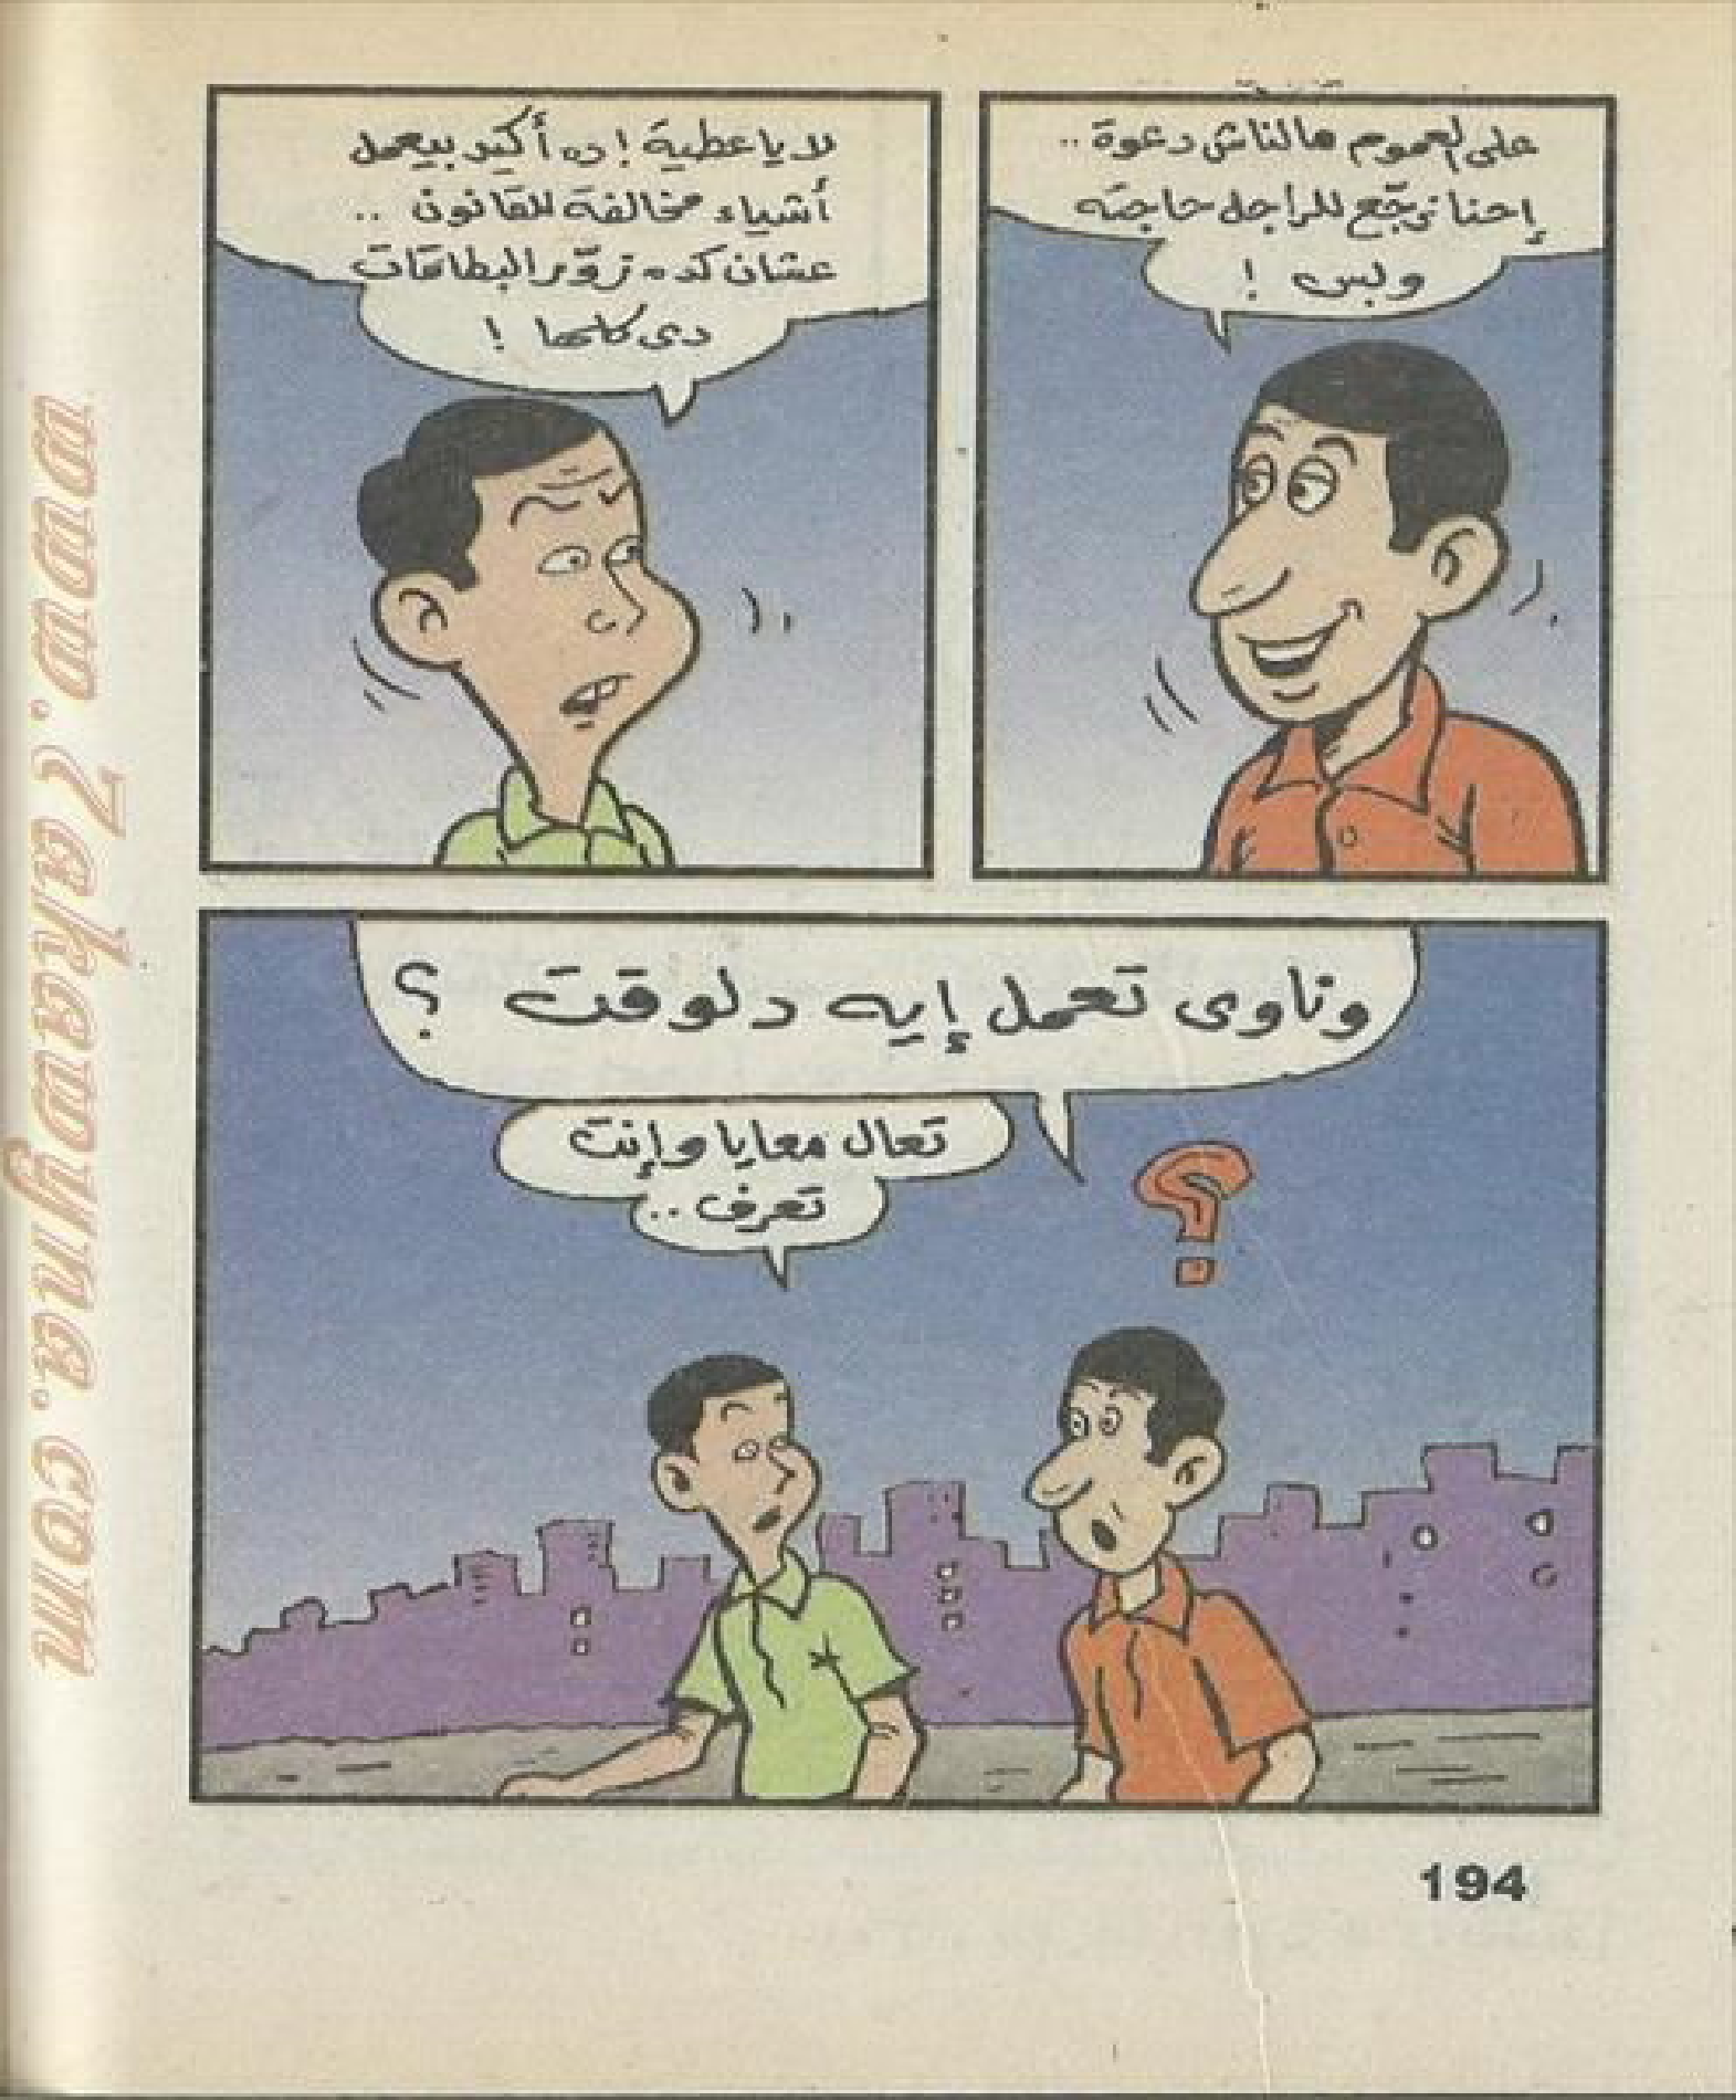 على العموم مالناش دعوة ..
إحنا نرجّع للراجل حاجته
وبس !
لا يا عطية ! ده أكيد بيعمل
أشياء مخالفة للقانون ..
عشان كده زوّر البطاقات
دى كلها !
وناوى تعمل إيه دلوقت ؟
تعال معايا وإنت
تعرف ..
؟
194
www.7akawyna.com